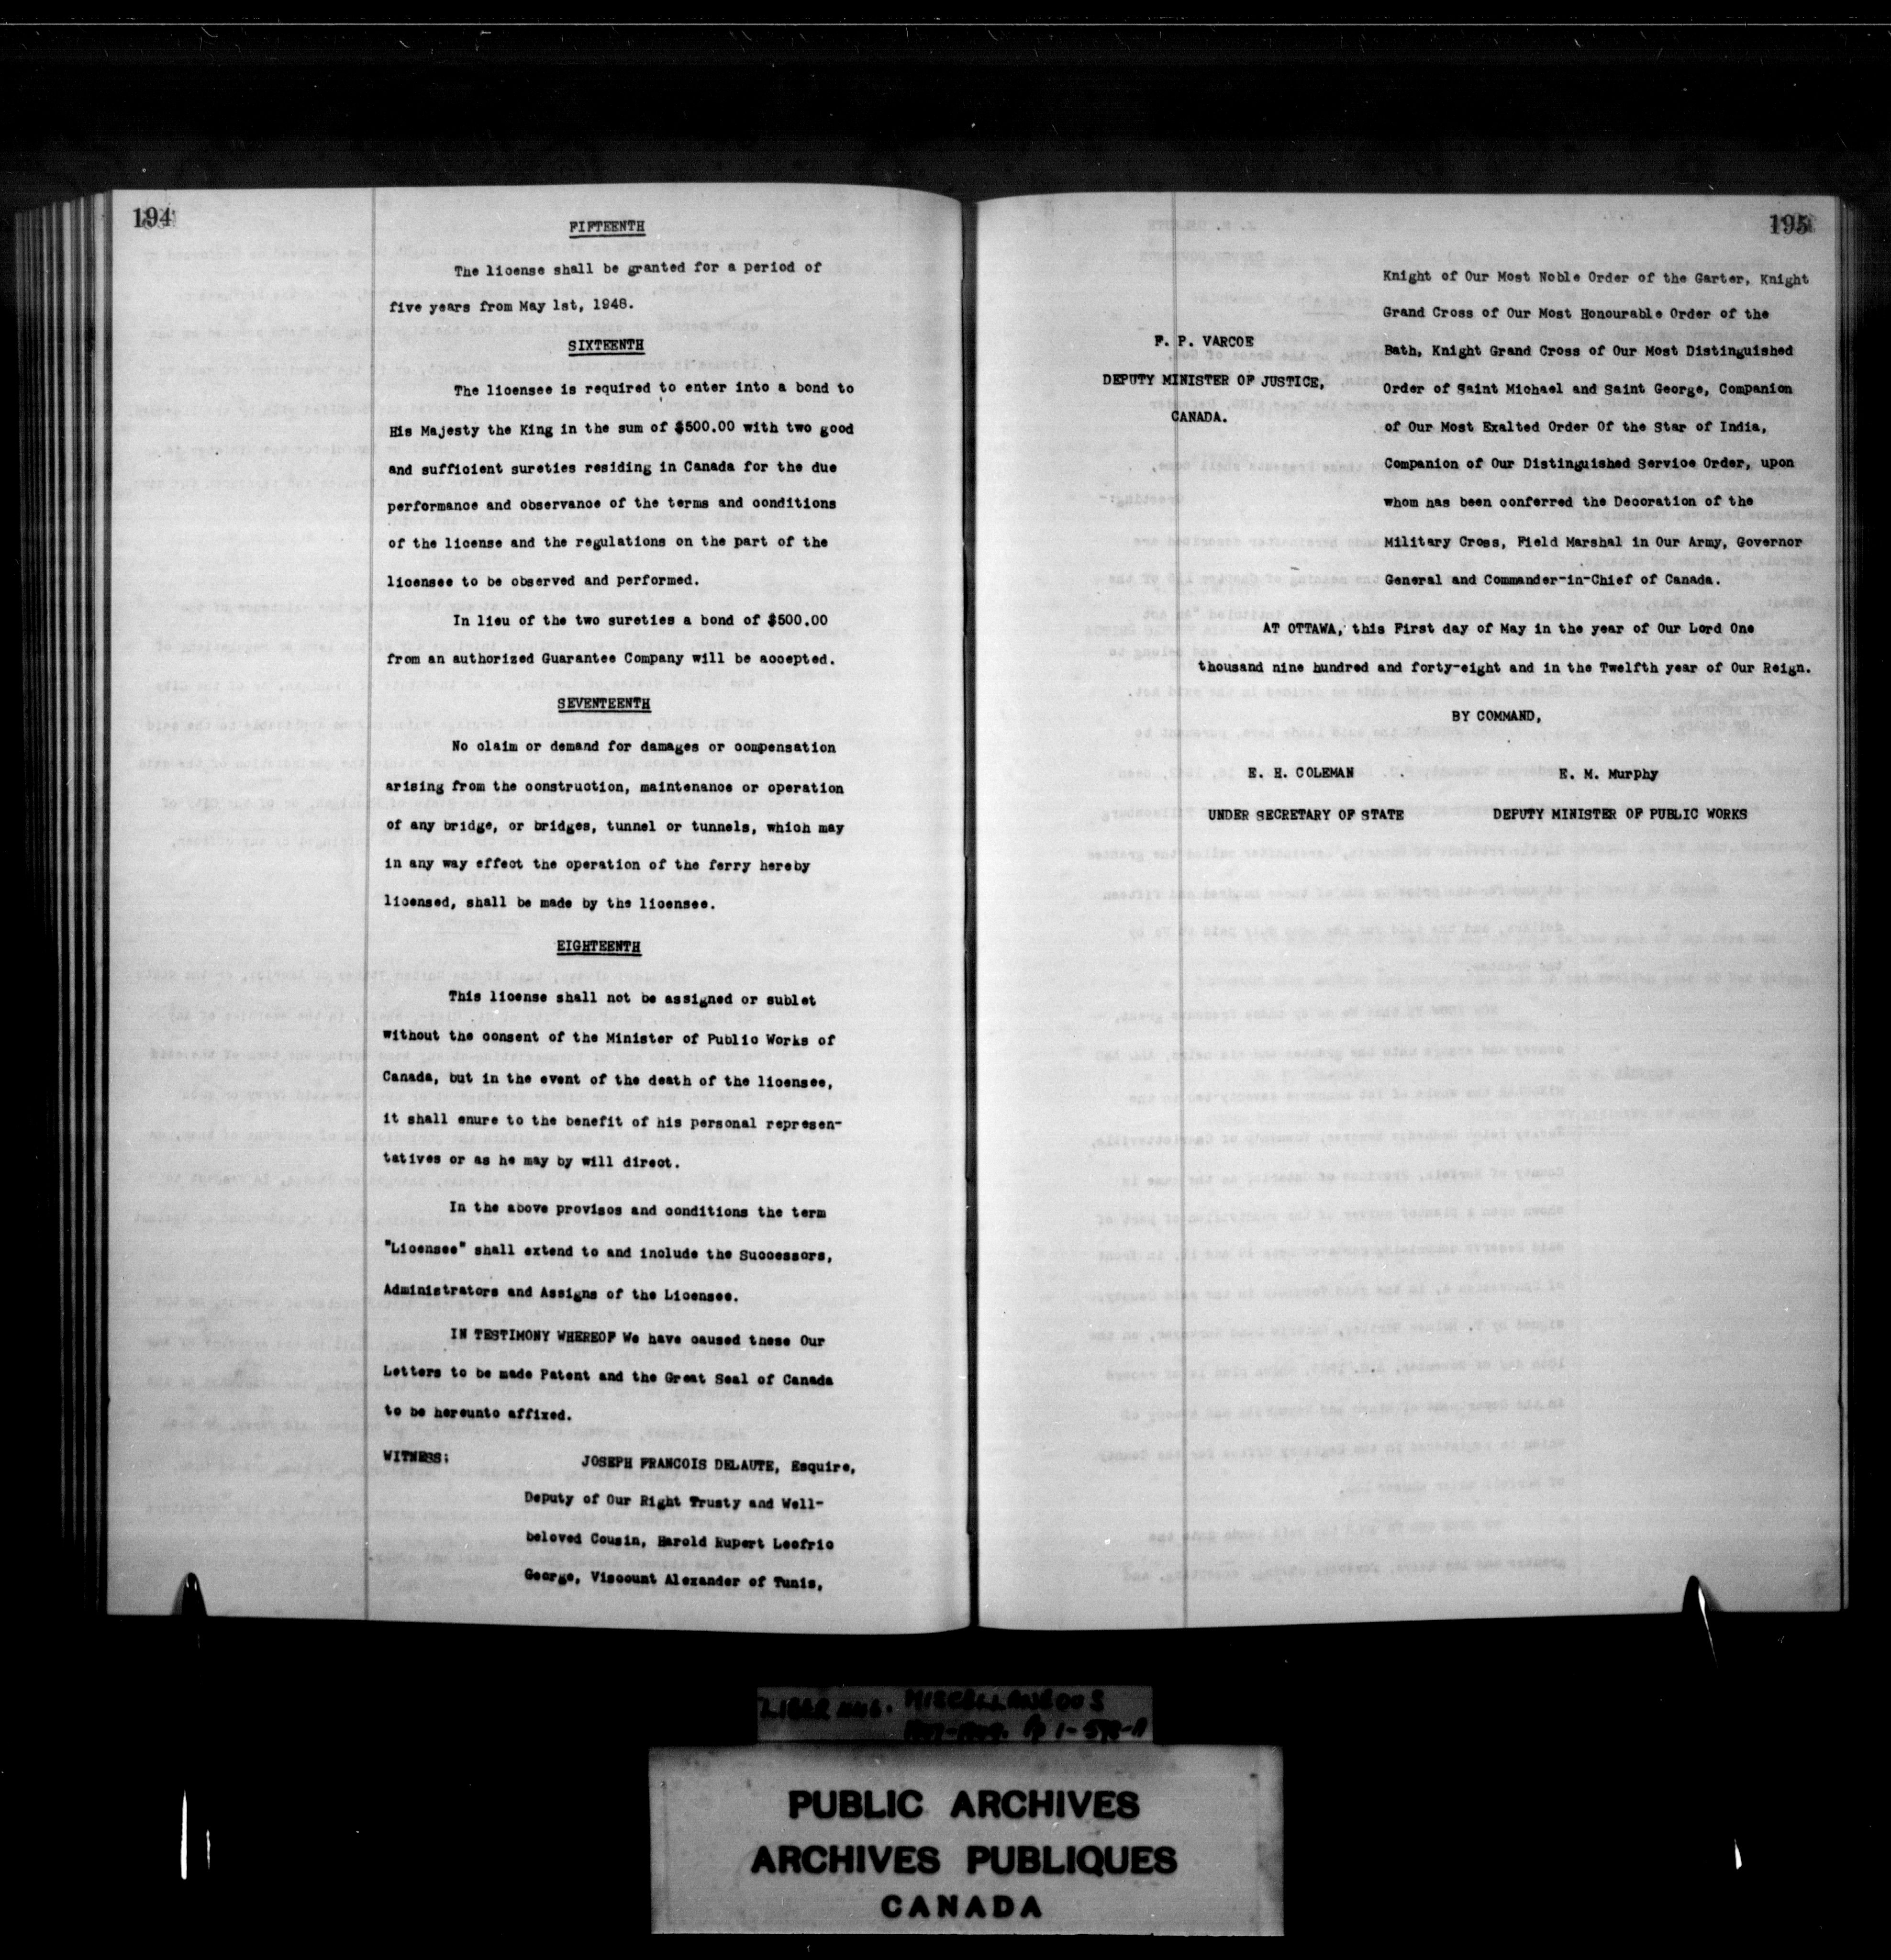 194
FIFTEENTH
The license shall be granted for a period of
five years from May 1st, 1948.
SIXTEENTH
The licensee is required to enter into a bond to
His Majesty the King in the sum of $500.00 with two good
and sufficient sureties residing in Canada for the due
performance and observance of the terms and conditions
of the license and the regulations on the part of the
licensee to be observed and performed.
In lieu of the two sureties a bond of $500.00
from an authorized Guarantee Company will be accepted.
SEVENTEENTH
No claim or demand for damages or compensation
arising from the construction, maintenance or operation
of any bridge, or bridges, tunnel or tunnels, which may
in any way effect the operation of the ferry hereby
licensed, shall be made by the licensee.
EIGHTEENTH
This license shall not be assigned or sublet
without the consent of the Minister of Public Works of
Canada, but in the event of the death of the licensee,
it shall enure to the benefit of his personal represen-
tatives or as he may by will direct.
In the above provisos and conditions the term
"Licensee" shall extend to and include the Successors,
Administrators and Assigns of the Licensee.
IN TESTIMONY WHEREOF We have caused these Our
Letters to be made Patent and the Great Seal of Canada
to be hereunto affixed.
WITNESS: JOSEPH FRANCOIS DELAUTE, Esquire,
Deputy of Our Right Trusty and Well-
beloved Cousin, Harold Rupert Leofric
George, Viscount Alexander of Tunis,
195
Knight of Our Most Noble Order of the Garter, Knight
Grand Cross of Our Most Honourable Order of the
Bath, Knight Grand Cross of Our Most Distinguished
Order of Saint Michael and Saint George, Companion
of Our Most Exalted Order Of the Star of India,
Companion of Our Distinguished Service Order, upon
whom has been conferred the Decoration of the
Military Cross, Field Marshal in Our Army, Governor
General and Commander-in-Chief of Canada.
F. P. VARCOE
DEPUTY MINISTER OF JUSTICE,
CANADA.
AT OTTAWA, this First day of May in the year of Our Lord One
thousand nine hundred and forty-eight and in the Twelfth year of Our Reign.
BY COMMAND,
E. H. COLEMAN E. M. Murphy
UNDER SECRETARY OF STATE DEPUTY MINISTER OF PUBLIC WORKS
LIBER MISCELLANEOUS
PUBLIC ARCHIVES
ARCHIVES PUBLIQUES
CANADA